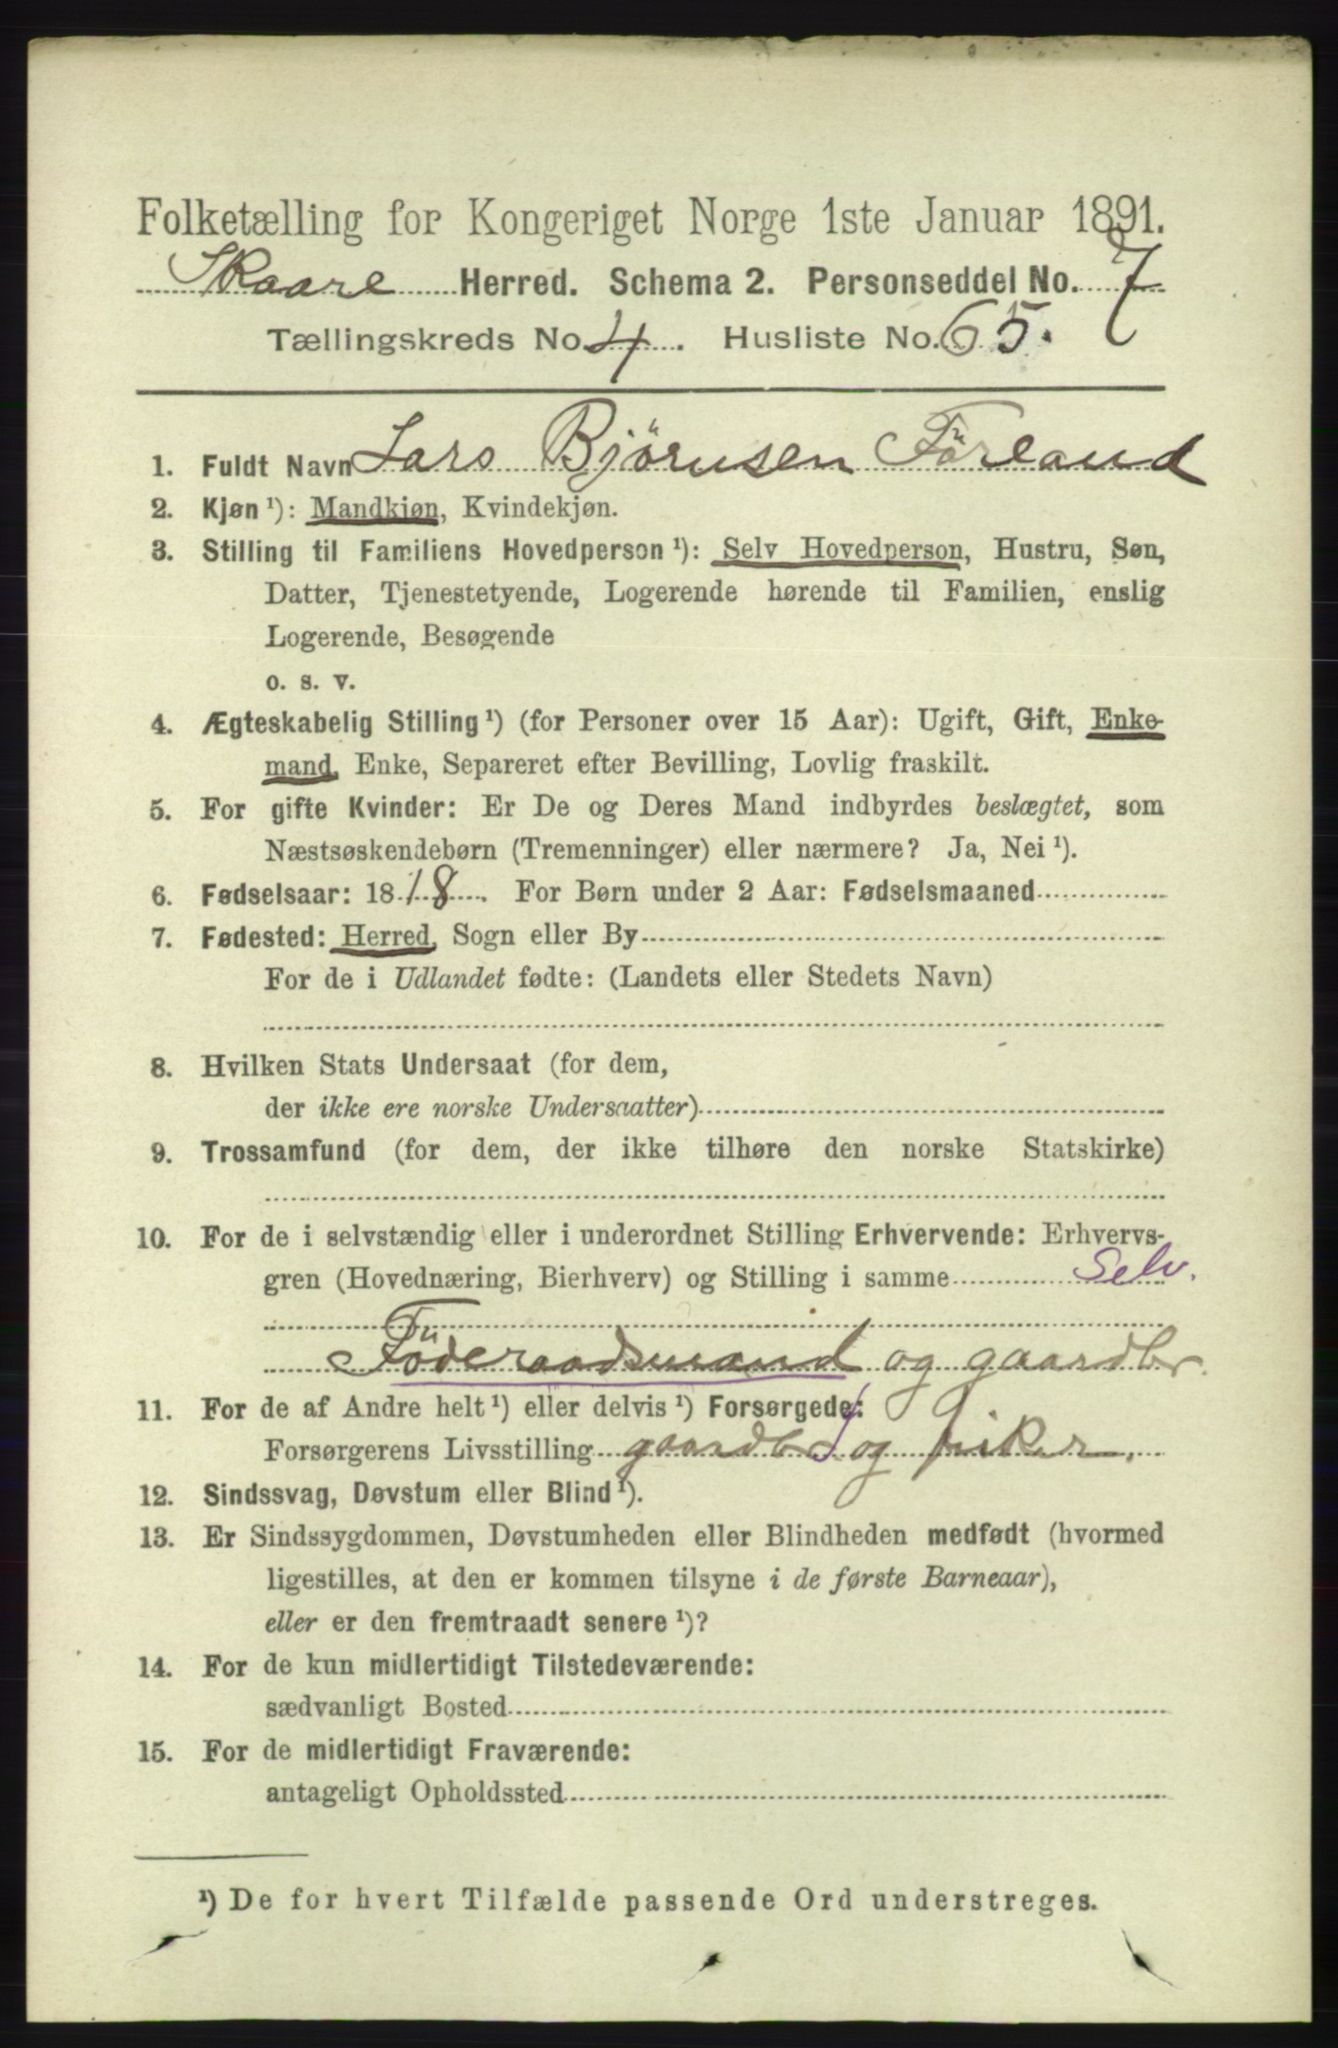 Folketælling for Kongeriget Norge 1ste Januar 1891.
Skaare Herred. Schema 2. Personseddel No. 7
Tællingskreds No. 4. Husliste No. 65.
1. Fuldt Navn Lars Bjørnsen Förland
2. Kjøn ¹): Mandkjøn, Kvindekjøn.
3. Stilling til Familiens Hovedperson ¹): Selv Hovedperson, Hustru, Søn,
Datter, Tjenestetyende, Logerende hørende til Familien, enslig
Logerende, Besøgende
o. s. v.
4. Ægteskabelig Stilling ¹) (for Personer over 15 Aar): Ugift, Gift, Enke-
mand, Enke, Separeret efter Bevilling, Lovlig fraskilt.
5. For gifte Kvinder: Er De og Deres Mand indbyrdes beslægtet, som
Næstsøskendebørn (Tremenninger) eller nærmere? Ja, Nei ¹).
6. Fødselsaar: 1818. For Børn under 2 Aar: Fødselsmaaned
7. Fødested: Herred, Sogn eller By
For de i Udlandet fødte: (Landets eller Stedets Navn)
8. Hvilken Stats Undersaat (for dem,
der ikke ere norske Undersaatter)
9. Trossamfund (for dem, der ikke tilhøre den norske Statskirke)
10. For de i selvstændig eller i underordnet Stilling Erhvervende: Erhvervs-
gren (Hovednæring, Bierhverv) og Stilling i samme Selv.
Föderaadsmand og gaardbr.
11. For de af Andre helt ¹) eller delvis ¹) Forsørgede:
Forsørgerens Livsstilling gaardbr og fisker.
12. Sindssvag, Døvstum eller Blind ¹).
13. Er Sindssygdommen, Døvstumheden eller Blindheden medfødt (hvormed
ligestilles, at den er kommen tilsyne i de første Barneaar),
eller er den fremtraadt senere ¹)?
14. For de kun midlertidigt Tilstedeværende:
sædvanligt Bosted
15. For de midlertidigt Fraværende:
antageligt Opholdssted
¹) De for hvert Tilfælde passende Ord understreges.